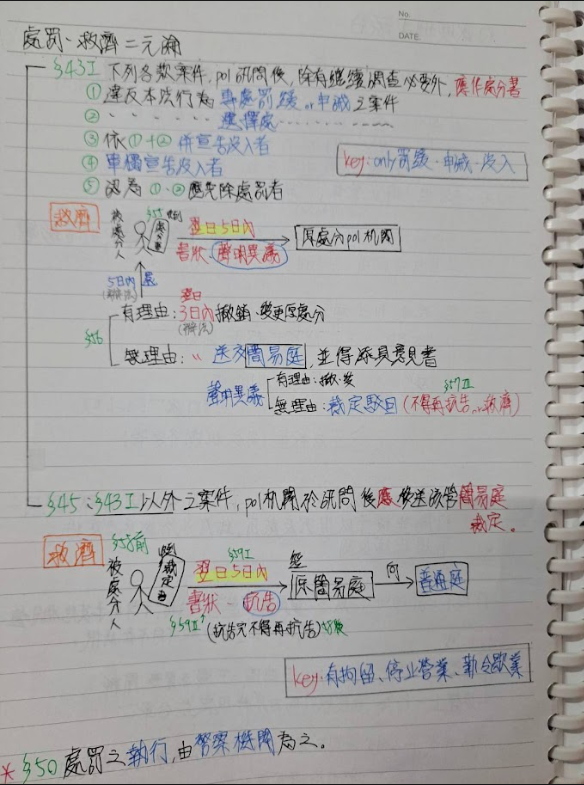 No.
DATE
處罰、救濟二元論
§43I 下列各款案件，pol訊問後，除有繼續調查必要外，應作處分書
① 違反本法行為專處罰鍰or申誡之案件
② 〃 〃 〃 選擇處 〃
③ 依①+②併宣告沒入者
④ 單獨宣告沒入者
⑤ 認為①、②應免除處罰者
key: only罰鍰、申誡、沒入
救濟
被處分人
§55 收到處分書
翌日5日內
書狀、聲明異議
原處分pol机関
5日內
(辦法)
送
§56
有理由：翌日3日內撤銷、變更原處分
(辦法)
無理由：〃 送交簡易庭，並得添具意見書
聲明異議
有理由：撤、變
§57II
無理由：裁定駁回(不得再抗告or救濟)
§45：§43I以外之案件，pol机関於訊問後應移送該管簡易庭裁定。
救濟
§58前
被處分人
收到裁定書
§59I
翌日5日內
書狀、抗告
經
原簡易庭
向
普通庭
(抗告完不得再抗告)
key:有拘留、停止營業、勒令歇業
* §50 處罰之執行，由警察機関為之。